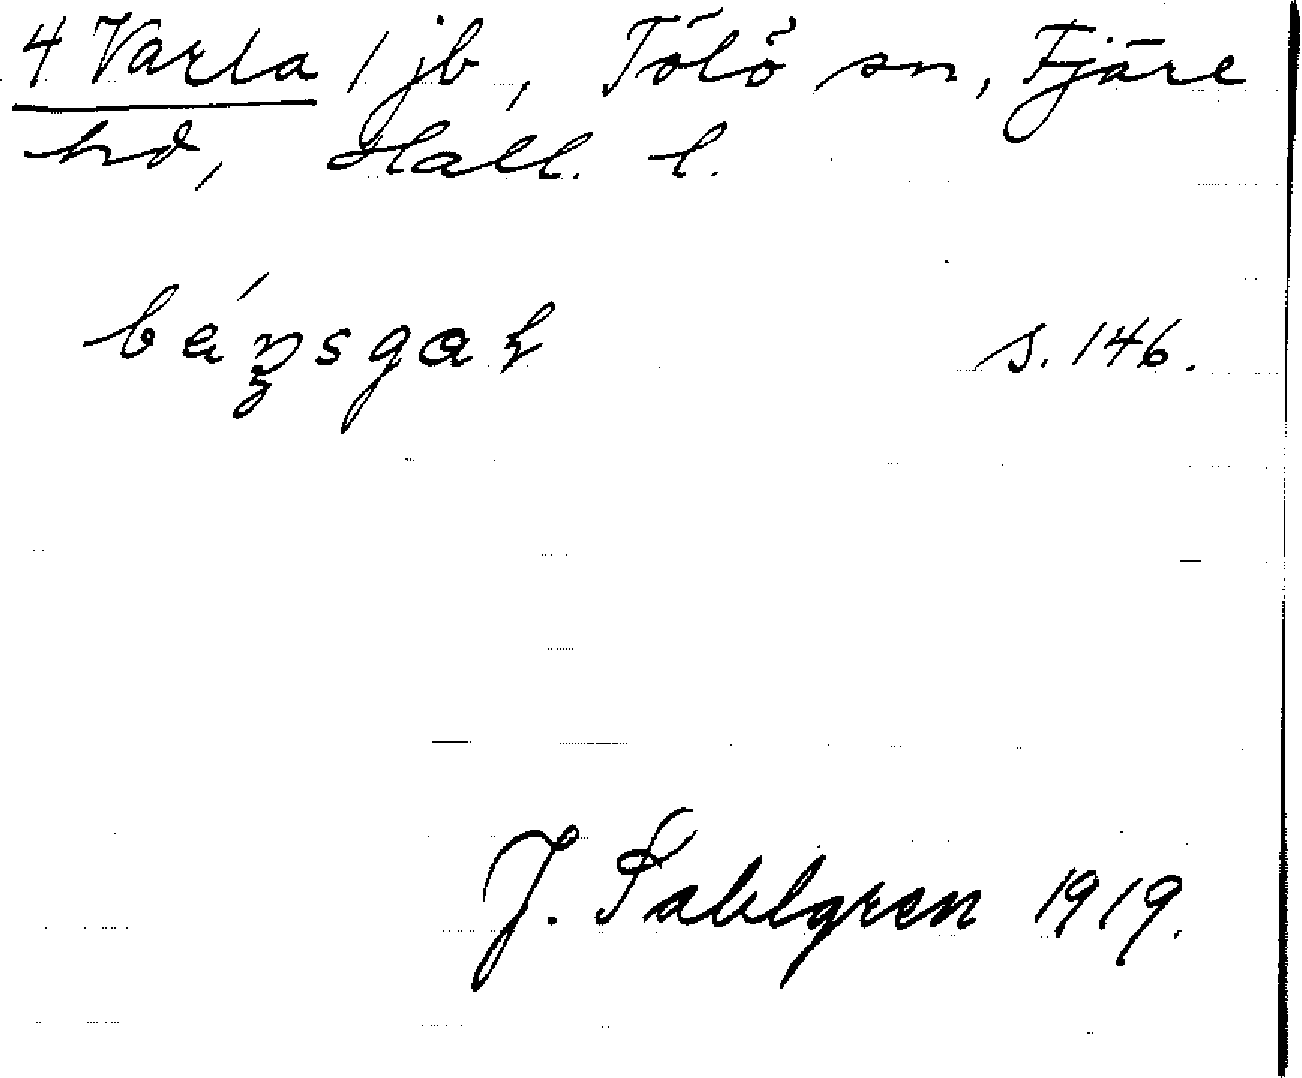 4 Varla 1 jb, Tölö sn, Fjäre
hd, Hall. l.
s. 146.
J. Sahlgren 1919.